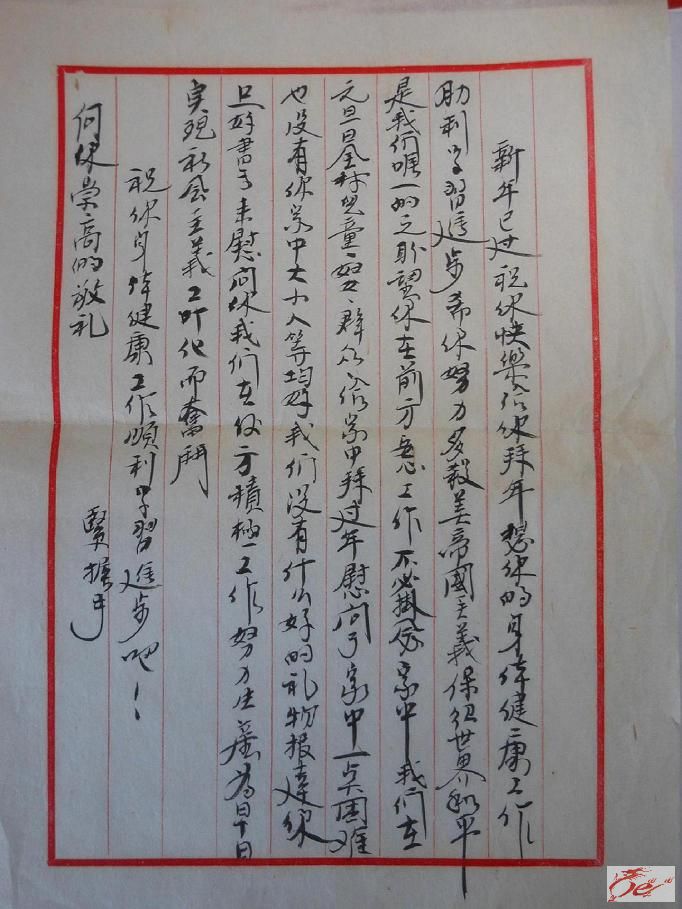 新年已过祝你快樂给你拜年想你的身体健康工作
助利学習進步希你努力多殺美帝國主義保衛世界和平
是我们唯一的之盼望你在前方忠工作不必掛念家中我们在
元旦日全村児童對群众给家中拜过年慰问了家中一点困难
也没有你家中大小人等均好我们没有什么好的礼物报達你
只好書写来慰问你我们在後方積極工作努力生產为早日
实现社会主義工业化而奮鬥
祝你身体健康工作順利学習進步吧！
何你崇高的敬礼
賢握手